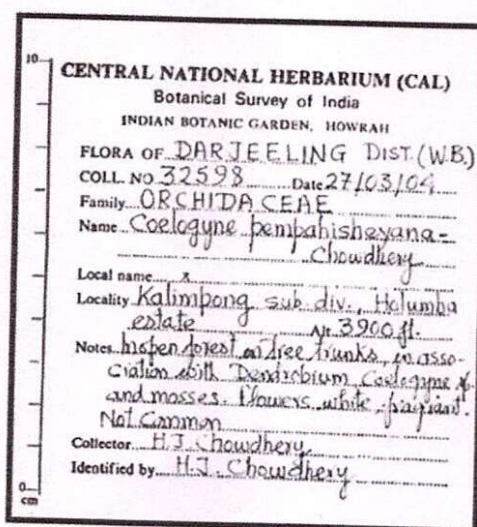 10
CENTRAL NATIONAL HERBARIUM (CAL)
Botanical Survey of India
INDIAN BOTANIC GARDEN, HOWRAH
FLORA OF DARJEELING DIST. (W.B.)
COLL. NO 32598 Date 27/03/04
Family ORCHIDACEAE
Name Coelogyne pempahisheyana-
Chowdhery
Local name x
Locality Kalimpong sub div., Holumba
estate Alt 3900 ft.
Notes In open forest on tree trunks, in asso-
ciation with Dendrobium Coelogyne
and mosses. Flowers white, fragrant.
Not Common
Collector H.J. Chowdhery
Identified by H.J. Chowdhery
0
cm